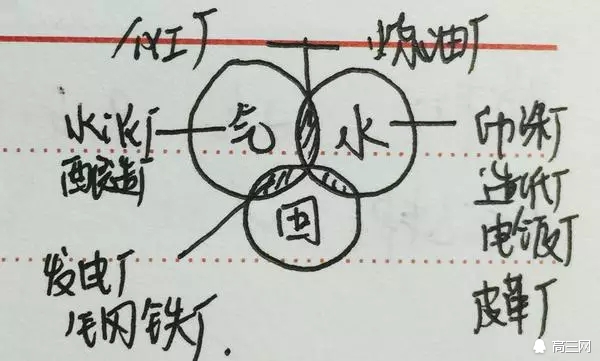 化工厂
炼油厂
气
水
水泥厂
酿造厂
印染厂
造纸厂
电镀厂
皮革厂
固
发电厂
钢铁厂
高三网